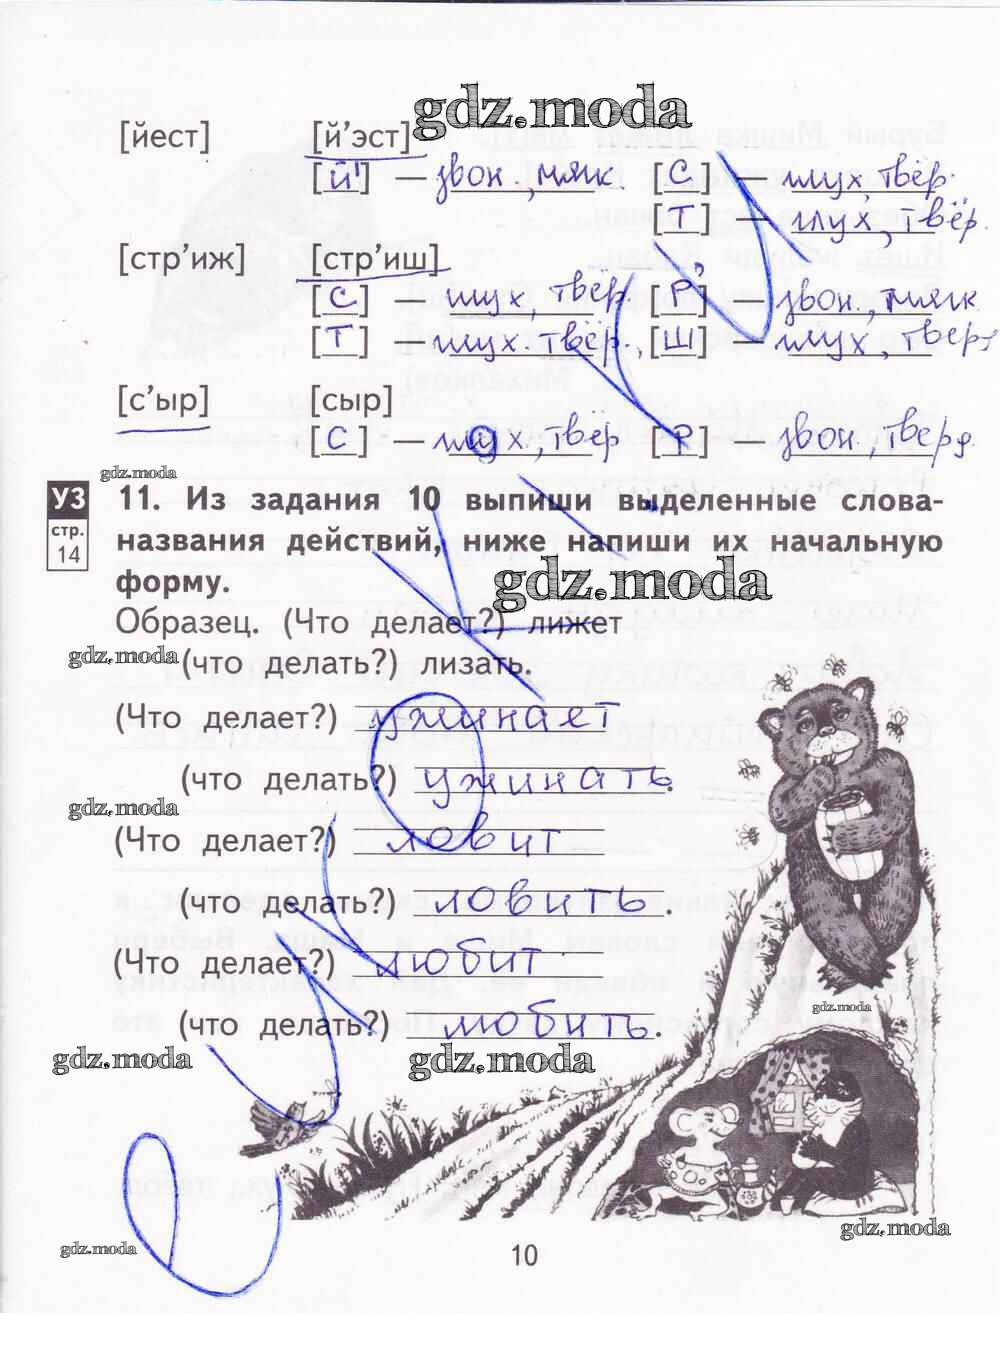 gdz.moda
[йест] [й’эст]
[й'] — звон., мягк. [С] — глух, твёр.
[Т] — глух, твёр.
[стр’иж] [стр’иш]
[С] — глух, твёр. [Р'] — звон., мягк
[Т] — глух. твёр., [Ш] — глух, тверд
[с’ыр] [сыр]
[С] — глух, твёр [Р] — звон., тверд
gdz.moda
УЗ 11. Из задания 10 выпиши выделенные слова-
стр. названия действий, ниже напиши их начальную
14 форму.
gdz.moda
Образец. (Что делает?) лижет
gdz.moda (что делать?) лизать.
(Что делает?) ужинает
(что делать?) ужинать.
gdz.moda
(Что делает?) ловит
(что делать?) ловить.
(Что делает?) любит
gdz.moda
(что делать?) любить.
gdz.moda gdz.moda
gdz.moda
gdz.moda
10